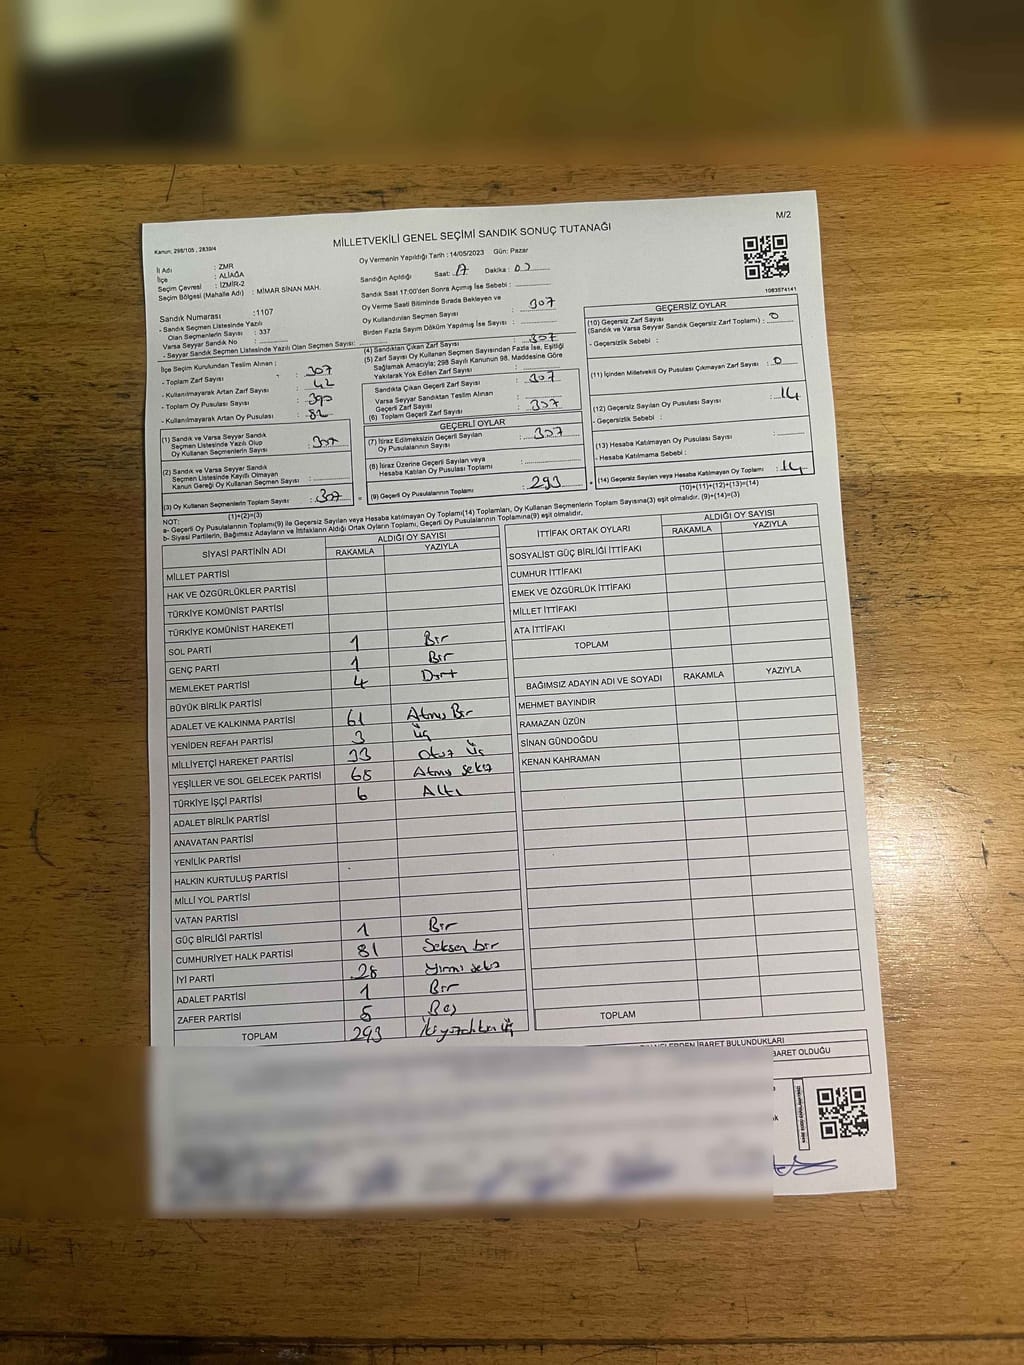 M/2
MİLLETVEKİLİ GENEL SEÇİMİ SANDIK SONUÇ TUTANAĞI
Kanun: 298/105 , 2839/4
Oy Vermenin Yapıldığı Tarih : 14/05/2023 Gün: Pazar
İl Adı : ZMR
İlçe : ALİAĞA
Seçim Çevresi : İZMİR-2
Seçim Bölgesi (Mahalle Adı) : MİMAR SİNAN MAH.
Sandık Numarası : 1107
- Sandık Seçmen Listesinde Yazılı
Olan Seçmenlerin Sayısı : 337
Varsa Seyyar Sandık No :
- Seyyar Sandık Seçmen Listesinde Yazılı Olan Seçmen Sayısı:
İlçe Seçim Kurulundan Teslim Alınan ;
- Toplam Zarf Sayısı :
- Kullanılmayarak Artan Zarf Sayısı : 42
- Toplam Oy Pusulası Sayısı : 390
- Kullanılmayarak Artan Oy Pusulası :
(1) Sandık ve Varsa Seyyar Sandık
Seçmen Listesinde Yazılı Olup
Oy Kullanan Seçmenlerin Sayısı : 307
(2) Sandık ve Varsa Seyyar Sandık
Seçmen Listesinde Kayıtlı Olmayan
Kanun Gereği Oy Kullanan Seçmen Sayısı :
(3) Oy Kullanan Seçmenlerin Toplam Sayısı : 307
(1)+(2)=(3)
Sandığın Açıldığı Saat: 17 Dakika : 00
Sandık Saat 17:00'den Sonra Açılmış İse Sebebi :
Oy Verme Saati Bitiminde Sırada Bekleyen ve
Oy Kullandırılan Seçmen Sayısı : 307
Birden Fazla Sayım Döküm Yapılmış İse Sayısı :
(4) Sandıktan Çıkan Zarf Sayısı : 307
(5) Zarf Sayısı Oy Kullanan Seçmen Sayısından Fazla İse, Eşitliği
Sağlamak Amacıyla; 298 Sayılı Kanunun 98. Maddesine Göre
Yakılarak Yok Edilen Zarf Sayısı :
Sandıkta Çıkan Geçerli Zarf Sayısı : 307
Varsa Seyyar Sandıktan Teslim Alınan
Geçerli Zarf Sayısı :
(6) Toplam Geçerli Zarf Sayısı : 307
GEÇERLİ OYLAR
(7) İtiraz Edilmeksizin Geçerli Sayılan
Oy Pusulalarının Sayısı : 307
(8) İtiraz Üzerine Geçerli Sayılan veya
Hesaba Katılan Oy Pusulası Toplamı :
(9) Geçerli Oy Pusulalarının Toplamı : 293
1083574141
GEÇERSİZ OYLAR
(10) Geçersiz Zarf Sayısı
(Sandık ve Varsa Seyyar Sandık Geçersiz Zarf Toplamı) : 0
- Geçersizlik Sebebi :
(11) İçinden Milletvekili Oy Pusulası Çıkmayan Zarf Sayısı : 0
(12) Geçersiz Sayılan Oy Pusulası Sayısı : 14
- Geçersizlik Sebebi :
(13) Hesaba Katılmayan Oy Pusulası Sayısı :
- Hesaba Katılmama Sebebi :
(14) Geçersiz Sayılan veya Hesaba Katılmayan Oy Toplamı : 14
(10)+(11)+(12)+(13)=(14)
NOT:
a- Geçerli Oy Pusulalarının Toplamı(9) ile Geçersiz Sayılan veya Hesaba katılmayan Oy Toplamı(14) Toplamları, Oy Kullanan Seçmenlerin Toplam Sayısına(3) eşit olmalıdır. (9)+(14)=(3)
b- Siyasi Partilerin, Bağımsız Adayların ve İttifakların Aldığı Ortak Oyların Toplamı, Geçerli Oy Pusulalarının Toplamına(9) eşit olmalıdır.
SİYASİ PARTİNİN ADI ALDIĞI OY SAYISI
RAKAMLA YAZIYLA
MİLLET PARTİSİ
HAK VE ÖZGÜRLÜKLER PARTİSİ
TÜRKİYE KOMÜNİST PARTİSİ
TÜRKİYE KOMÜNİST HAREKETİ
SOL PARTİ 1 Bir
GENÇ PARTİ 1 Bir
MEMLEKET PARTİSİ 4 Dört
BÜYÜK BİRLİK PARTİSİ
ADALET VE KALKINMA PARTİSİ 61 Atmış Bir
YENİDEN REFAH PARTİSİ 3 Üç
MİLLİYETÇİ HAREKET PARTİSİ 33 Otuz Üç
YEŞİLLER VE SOL GELECEK PARTİSİ 68 Atmış sekiz
TÜRKİYE İŞÇİ PARTİSİ 6 Altı
ADALET BİRLİK PARTİSİ
ANAVATAN PARTİSİ
YENİLİK PARTİSİ
HALKIN KURTULUŞ PARTİSİ
MİLLİ YOL PARTİSİ
VATAN PARTİSİ
GÜÇ BİRLİĞİ PARTİSİ 1 Bir
CUMHURİYET HALK PARTİSİ 81 Seksen bir
İYİ PARTİ 28 Yirmi sekiz
ADALET PARTİSİ 1 Bir
ZAFER PARTİSİ 5 Beş
TOPLAM 293 İkiyüzdoksan üç
İTTİFAK ORTAK OYLARI ALDIĞI OY SAYISI
RAKAMLA YAZIYLA
SOSYALİST GÜÇ BİRLİĞİ İTTİFAKI
CUMHUR İTTİFAKI
EMEK VE ÖZGÜRLÜK İTTİFAKI
MİLLET İTTİFAKI
ATA İTTİFAKI
TOPLAM
BAĞIMSIZ ADAYIN ADI VE SOYADI RAKAMLA YAZIYLA
MEHMET BAYINDIR
RAMAZAN ÜZÜN
SİNAN GÜNDOĞDU
KENAN KAHRAMAN
TOPLAM
İBARET BULUNDUKLARI
OLDUĞU